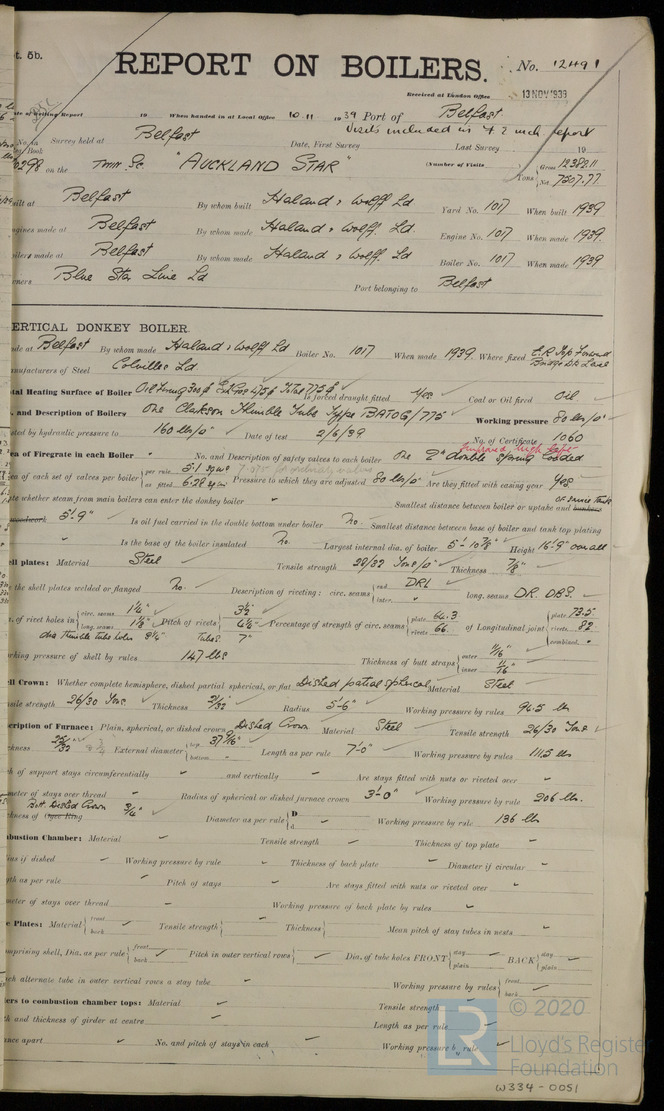 t. 5b.
REPORT ON BOILERS.
No. 12491
Received at London Office
13 NOV 1939
Date of writing Report 19 When handed in at Local Office 10.11 1939 Port of Belfast
No. in Survey held at Belfast Date, First Survey Visits included in 4 2 inch report Last Survey 19
Book
0298 on the "AUCKLAND STAR" (Number of Visits Tons { Gross 12382.11
Net 7507.77
uilt at Belfast By whom built Harland & Wolff Ld Yard No. 1017 When built 1939
ngines made at Belfast By whom made Harland & Wolff. Ld Engine No. 1017 When made 1939.
oilers made at Belfast By whom made Harland & Wolff. Ld Boiler No. 1017 When made 1939
wners Blue Star Line Ld Port belonging to Belfast
ERTICAL DONKEY BOILER.
ade at Belfast By whom made Harland & Wolff Ld Boiler No. 1017 When made 1939. Where fixed E.R. Top Forward
anufacturers of Steel Colvilles Ld
tal Heating Surface of Boiler Oil Firing 300 Ex Gas 475 Total 775 Is forced draught fitted Yes Coal or Oil fired Oil
and Description of Boilers One Clarkson Thimble Tube Type BATOG/775 Working pressure 80 lbs/□"
sted by hydraulic pressure to 160 lbs/□" Date of test 2/6/39 No. of Certificate 1060
ea of Firegrate in each Boiler No. and Description of safety valves to each boiler One 2" double spring loaded
ea of each set of valves per boiler { per rule
as fitted 6.28 Pressure to which they are adjusted 80 lbs/□" Are they fitted with easing gear Yes
te whether steam from main boilers can enter the donkey boiler Smallest distance between boiler or uptake and bunkers
woodwork 5'-9" Is oil fuel carried in the double bottom under boiler No. Smallest distance between base of boiler and tank top plating
Is the base of the boiler insulated No. Largest internal dia. of boiler 5'-10 7/8" Height 16'-9" overall
ell plates: Material Steel Tensile strength 28/32 Tons/□" Thickness 7/8"
the shell plates welded or flanged No. Description of riveting: circ. seams { end DRL
inter. long. seams DR. DBS.
of rivet holes in { circ. seams
long. seams Pitch of rivets { 3½ Percentage of strength of circ. seams { plate 64.3
rivets 66 of Longitudinal joint { plate 73.5
rivets 82
combined
dia Thimble tube holes Tubes 7"
orking pressure of shell by rules 147 lbs Thickness of butt straps { outer 11/16"
inner 11/16"
ell Crown: Whether complete hemisphere, dished partial spherical, or flat Dished partial spherical Material Steel
nsile strength 26/30 Tons Thickness Radius 5'-6" Working pressure by rules 96.5 lbs
escription of Furnace: Plain, spherical, or dished crown Dished Crown Material Steel Tensile strength 26/30 Tons
ckness External diameter { top 37 9/16"
bottom Length as per rule 7'-0" Working pressure by rules 111.5 lbs
ch of support stays circumferentially and vertically Are stays fitted with nuts or riveted over
ameter of stays over thread Radius of spherical or dished furnace crown 3'-0" Working pressure by rule 206 lbs.
Bott. Dished Crown
ckness of Ogee Ring ¾" Diameter as per rule { D
d Working pressure by rule 136 lbs
mbustion Chamber: Material Tensile strength Thickness of top plate
ius if dished Working pressure by rule Thickness of back plate Diameter if circular
gth as per rule Pitch of stays Are stays fitted with nuts or riveted over
meter of stays over thread Working pressure of back plate by rules
e Plates: Material { front
back Tensile strength { Thickness { Mean pitch of stay tubes in nests
mprising shell, Dia. as per rule { front
back Pitch in outer vertical rows { Dia. of tube holes FRONT { stay
plain BACK { stay
plain
ach alternate tube in outer vertical rows a stay tube Working pressure by rules { front
back
ders to combustion chamber tops: Material Tensile strength
th and thickness of girder at centre Length as per rule
ance apart No. and pitch of stays in each Working pressure by rule
© 2020
LR Lloyd's Register
Foundation
W334-0051